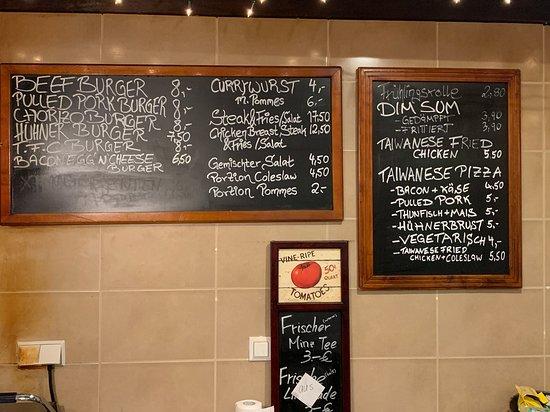 BEEF BURGER 8,-
PULLED PORK BURGER 8,-
CHORIZO BURGER 8,-
HÜHNER BURGER 7,50
T.F.C. BURGER
BACON, EGG'N CHEESE 6,50
BURGER
CURRYWURST 4,-
M. POMMES 6,-
Steak & Fries/Salat 17,50
Chicken Breast Steak 12,50
& Fries/Salat
Gemischter Salat 4,50
Porzion Coleslaw 4,50
Porzion Pommes 2.-
Frühlingsrolle 2,80
DIM SUM
- GEDÄMPFT 3,90
- FRITIERT 3,90
TAIWANESE FRIED
CHICKEN 5,50
TAIWANESE PIZZA
- BACON + KÄSE 4,50
- PULLED PORK 5,-
- THUNFISCH + MAIS 5,-
- HÜHNERBRUST 5,-
- VEGETARISCH 4,-
- TAIWANESE FRIED
CHICKEN + COLESLAW 5,50
VINE-RIPE
50¢
QUART
TOMATOES
Frischer
Minz Tee
3.-€
aus